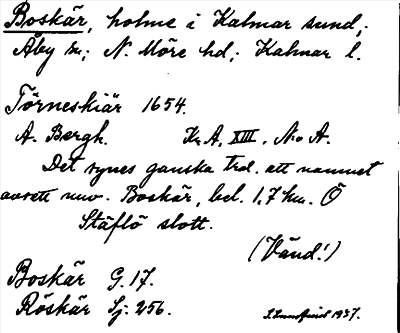 Boskär, holme i Kalmar sund,
Åby sn; N. Möre hd; Kalmar l.
Törneskiär 1654.
A. Bergh. Kr. A, XIII, No A.
Det synes ganska trol. att namnet
avsett nuv. Boskär, bel. 1,7 km. Ö
Stäflö slott.
(Vänd!)
Boskär G. 17.
Röskär Sj: 256.
1937.